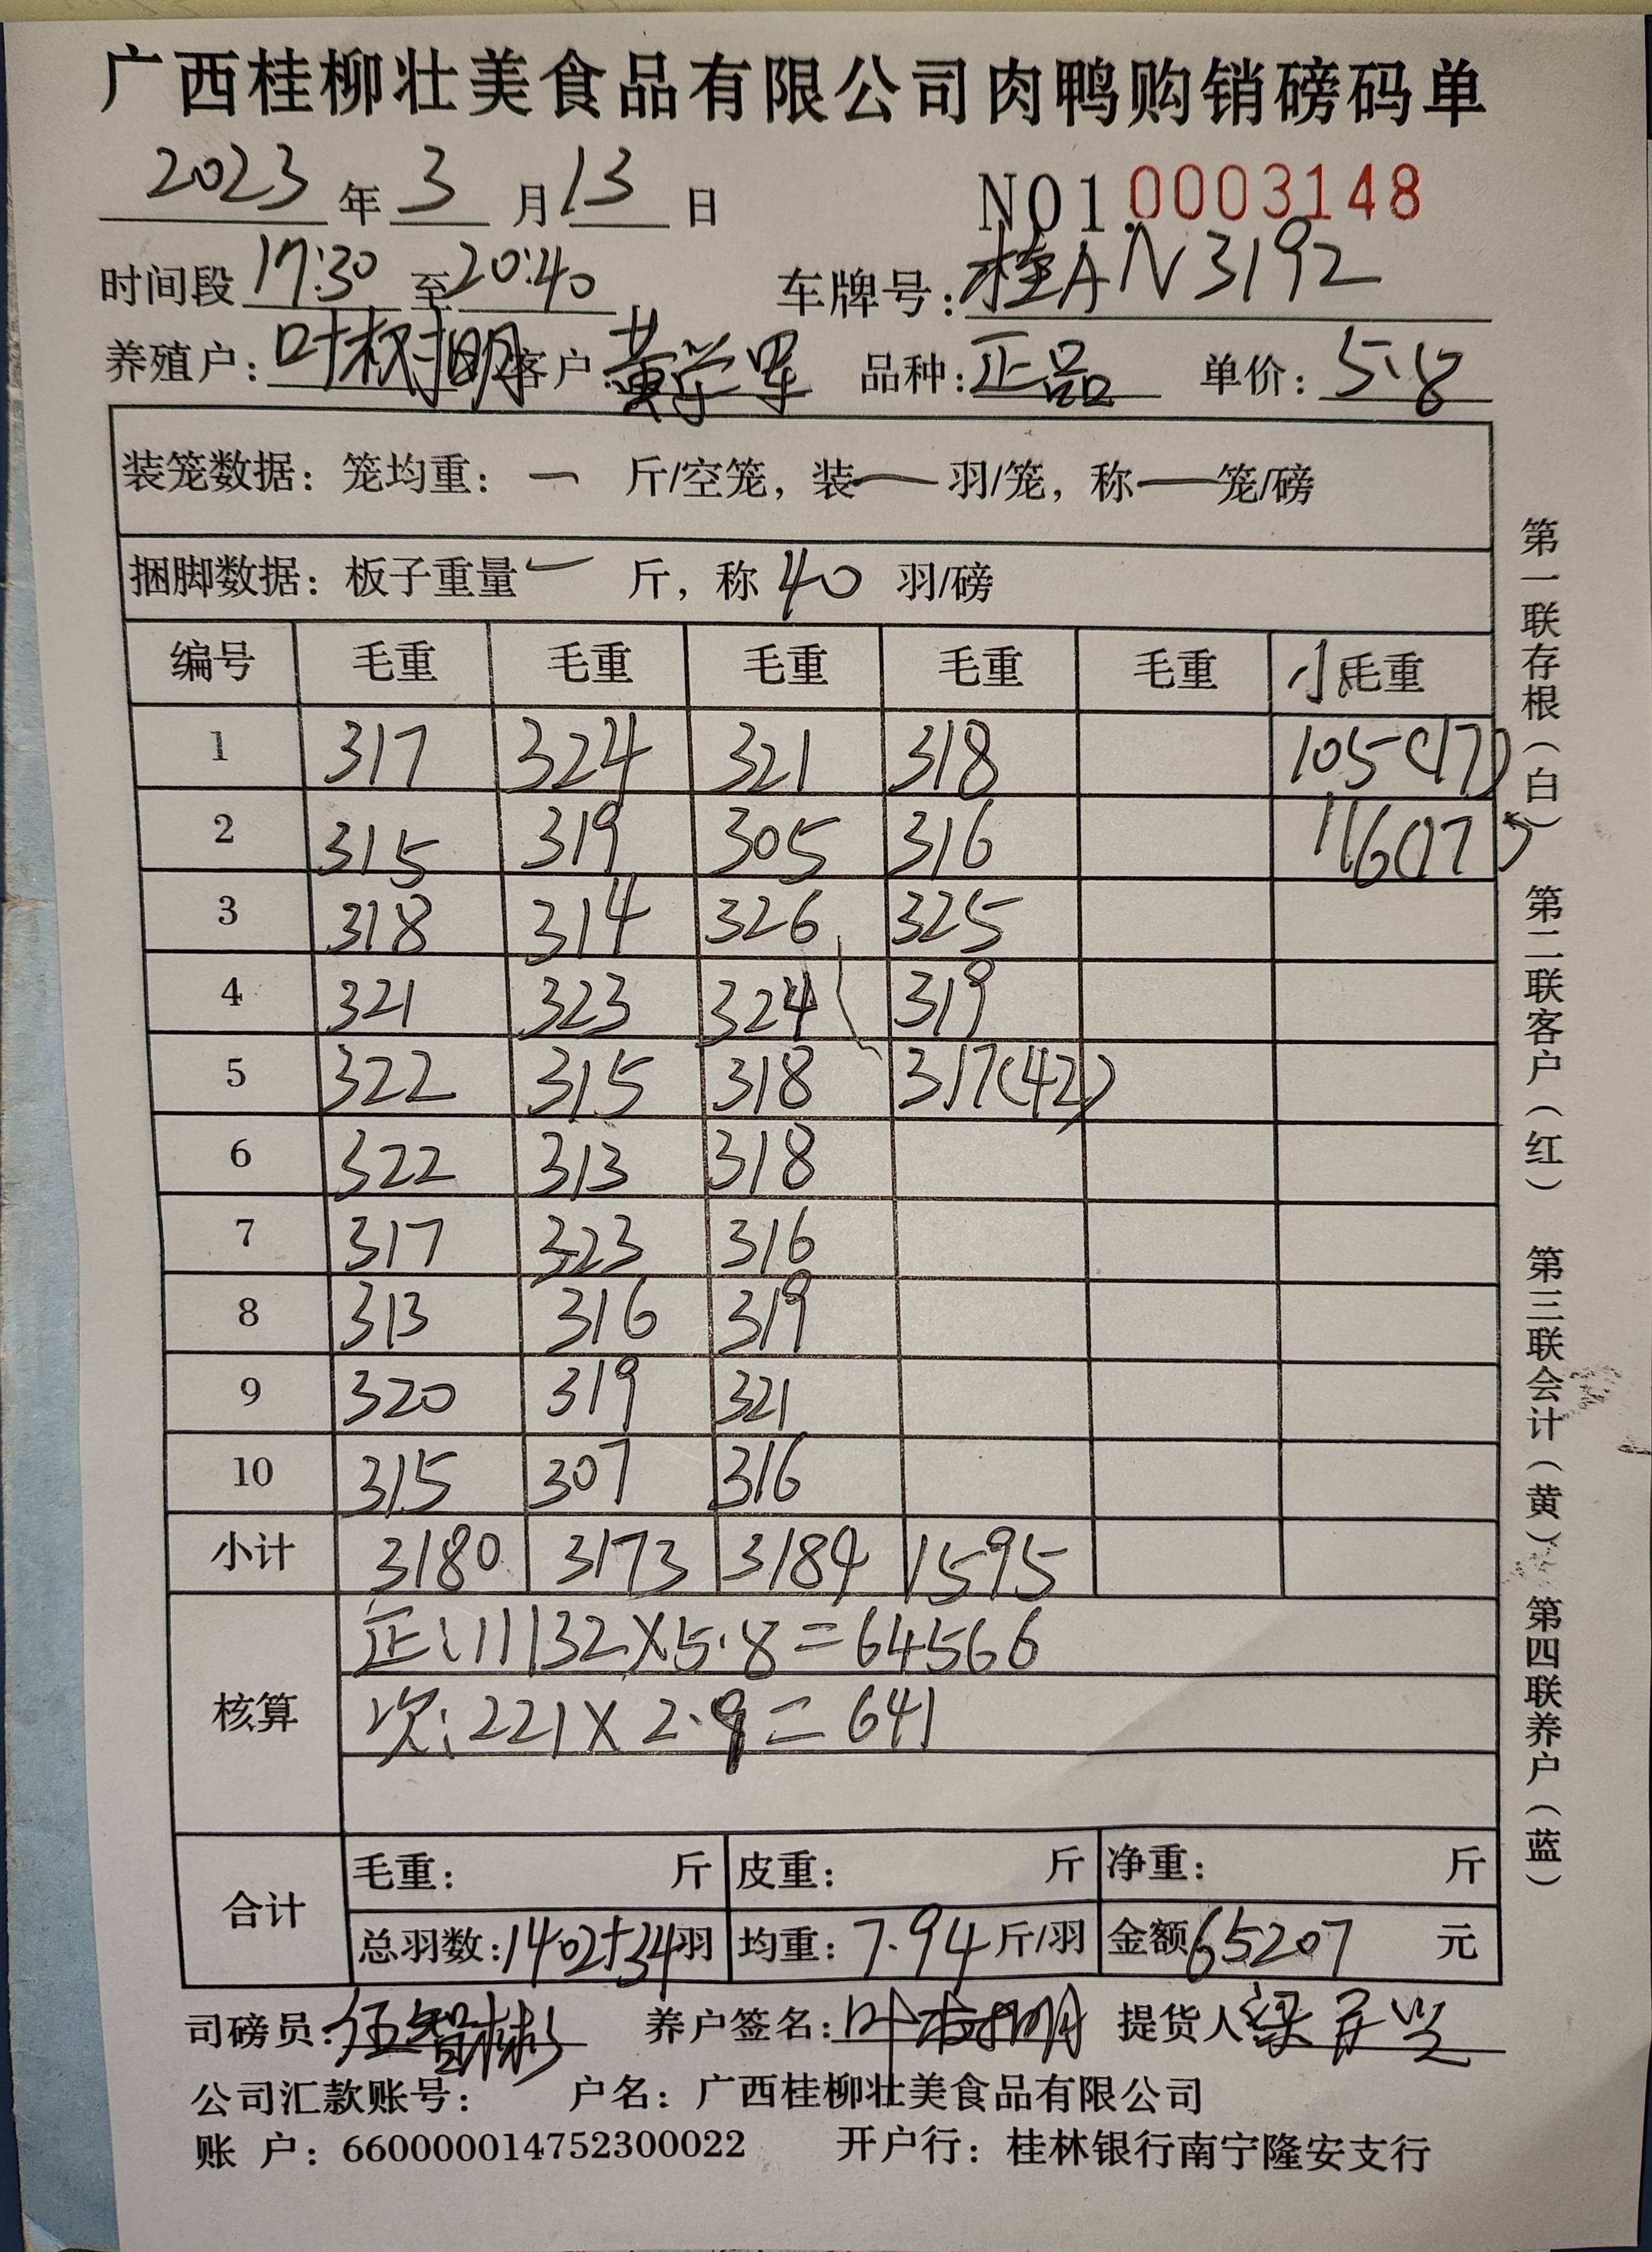 广西桂柳壮美食品有限公司肉鸭购销磅码单
2023 年 3 月 13 日 NO1.0003148
时间段 17:30 至 20:40 车牌号: 桂AN3192
养殖户: 叶树明 客户: 黄学军 品种: 正品 单价: 5.8
装笼数据: 笼均重: 一 斤/空笼, 装 — 羽/笼, 称 — 笼/磅
捆脚数据: 板子重量 一 斤, 称 40 羽/磅
编号 毛重 毛重 毛重 毛重 毛重 小毛重
1 317 324 321 318 105(17)
2 315 319 305 316 116(17)
3 318 314 326 325
4 321 323 324 319
5 322 315 318 317(42)
6 322 313 318
7 317 323 316
8 313 316 319
9 320 319 321
10 315 307 316
小计 3180 3173 3184 1595
核算 正:11132×5.8=64566
次:221×2.9=641
合计 毛重: 斤 皮重: 斤 净重: 斤
总羽数: 1402+34羽 均重: 7.94 斤/羽 金额 65207 元
司磅员: 伍智彬 养户签名: 叶树明 提货人 梁
公司汇款账号: 户名: 广西桂柳壮美食品有限公司
账 户: 660000014752300022 开户行: 桂林银行南宁隆安支行
第一联存根(白) 第二联客户(红) 第三联会计(黄) 第四联养户(蓝)